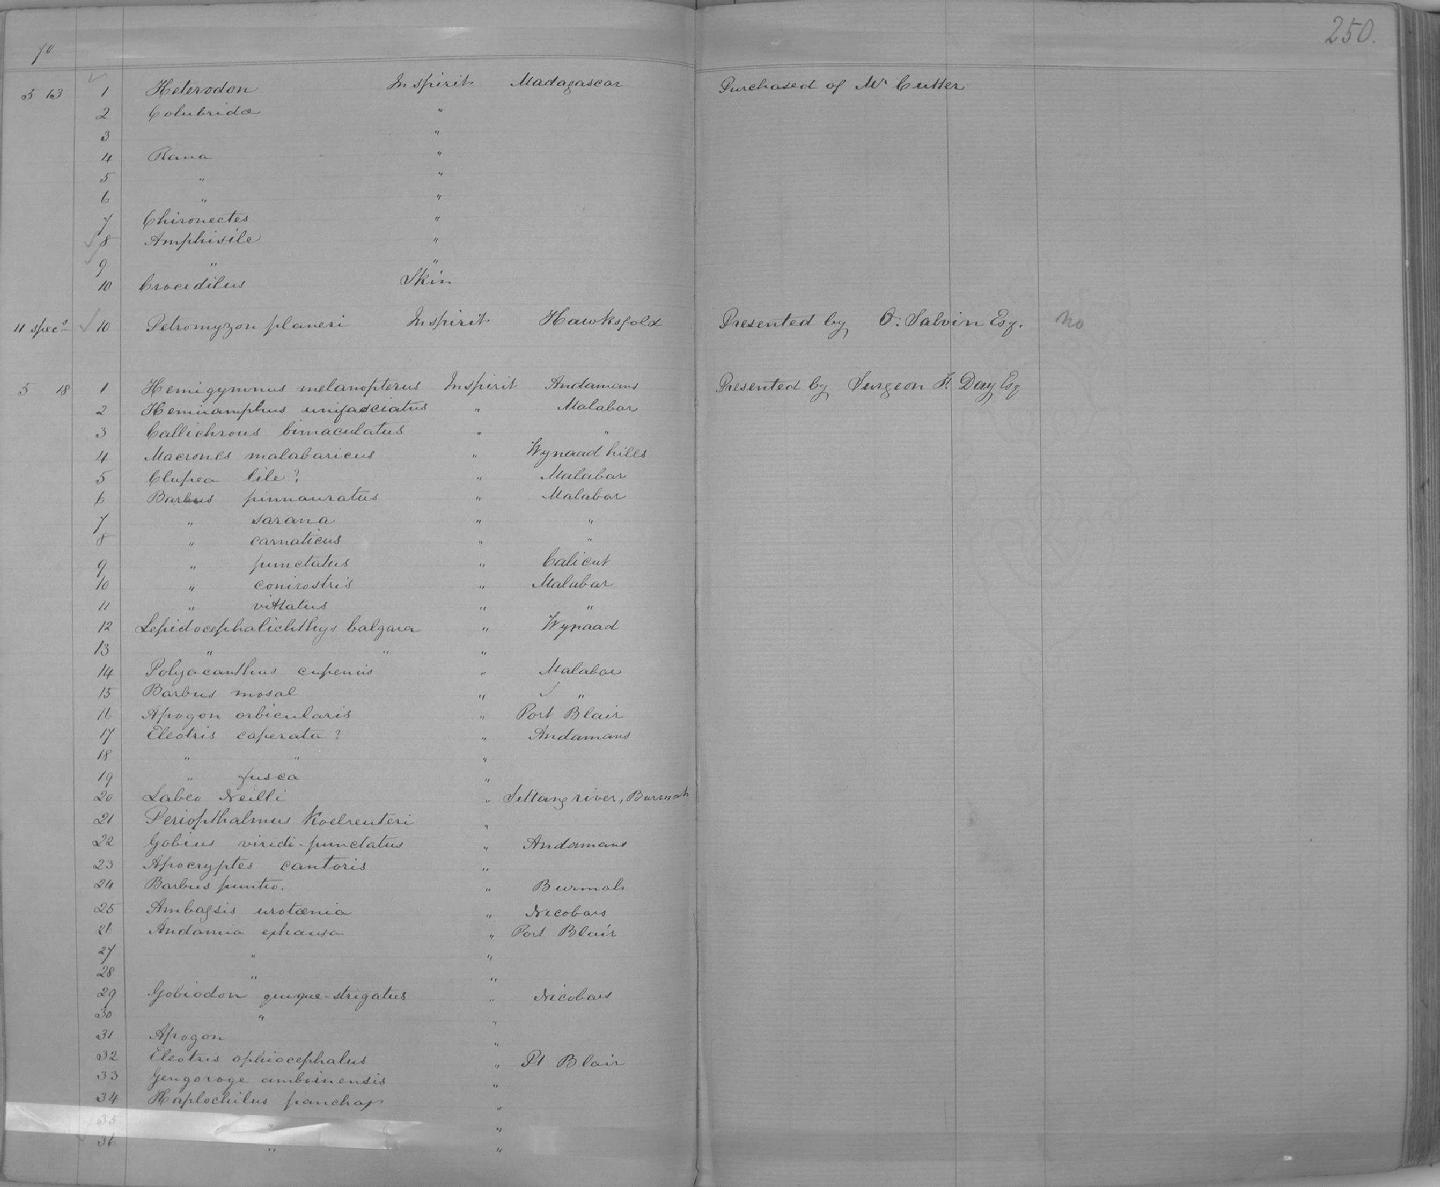 70 250.
5 13 1 Heterodon In spirit Madagascar Purchased of Mr Cutter
2 Colubridæ "
3 "
4 Rana "
5 " "
6 " "
7 Chironectes "
8 Amphisile "
9 " "
10 Crocodilus Skin
11 specs 10 Petromyzon planeri In spirit Hawksfold Presented by O. Salvin Esq. No
5 18 1 Hemigymnus melanopterus In spirit Andamans Presented by Surgeon F. Day Esq
2 Hemiramphus unifasciatus " Malabar
3 Callichrous bimaculatus " "
4 Macrones malabaricus " Wynaad hills
5 Clupea lile? " Malabar
6 Barbus pinnauratus " Malabar
7 " sarana " "
8 " carnaticus " "
9 " punctatus " Calicut
10 " conirostris " Malabar
11 " vittatus " "
12 Lepidocephalichthys balgara " Wynaad
13 " " "
14 Polyacanthus cupanus " Malabar
15 Barbus mosal " "
16 Apogon orbicularis " Port Blair
17 Eleotris caperata? " Andamans
18 " " "
19 " fusca "
20 Labeo Neilli " Sittang river, Burmah
21 Periopthalmus Koelreuteri "
22 Gobius viridi-punctatus " Andamans
23 Apocryptes cantoris "
24 Barbus puntio. " Burmah
25 Ambassis urotænia " Nicobars
26 Andamia expansa " Port Blair
27 " "
28 " "
29 Gobiodon quinque-strigatus " Nicobars
30 " "
31 Apogon "
32 Eleotris ophiocephalus " Pt Blair
33 Genyoroge amboinensis "
34 Haplochilus panchax "
35 " "
36 " "